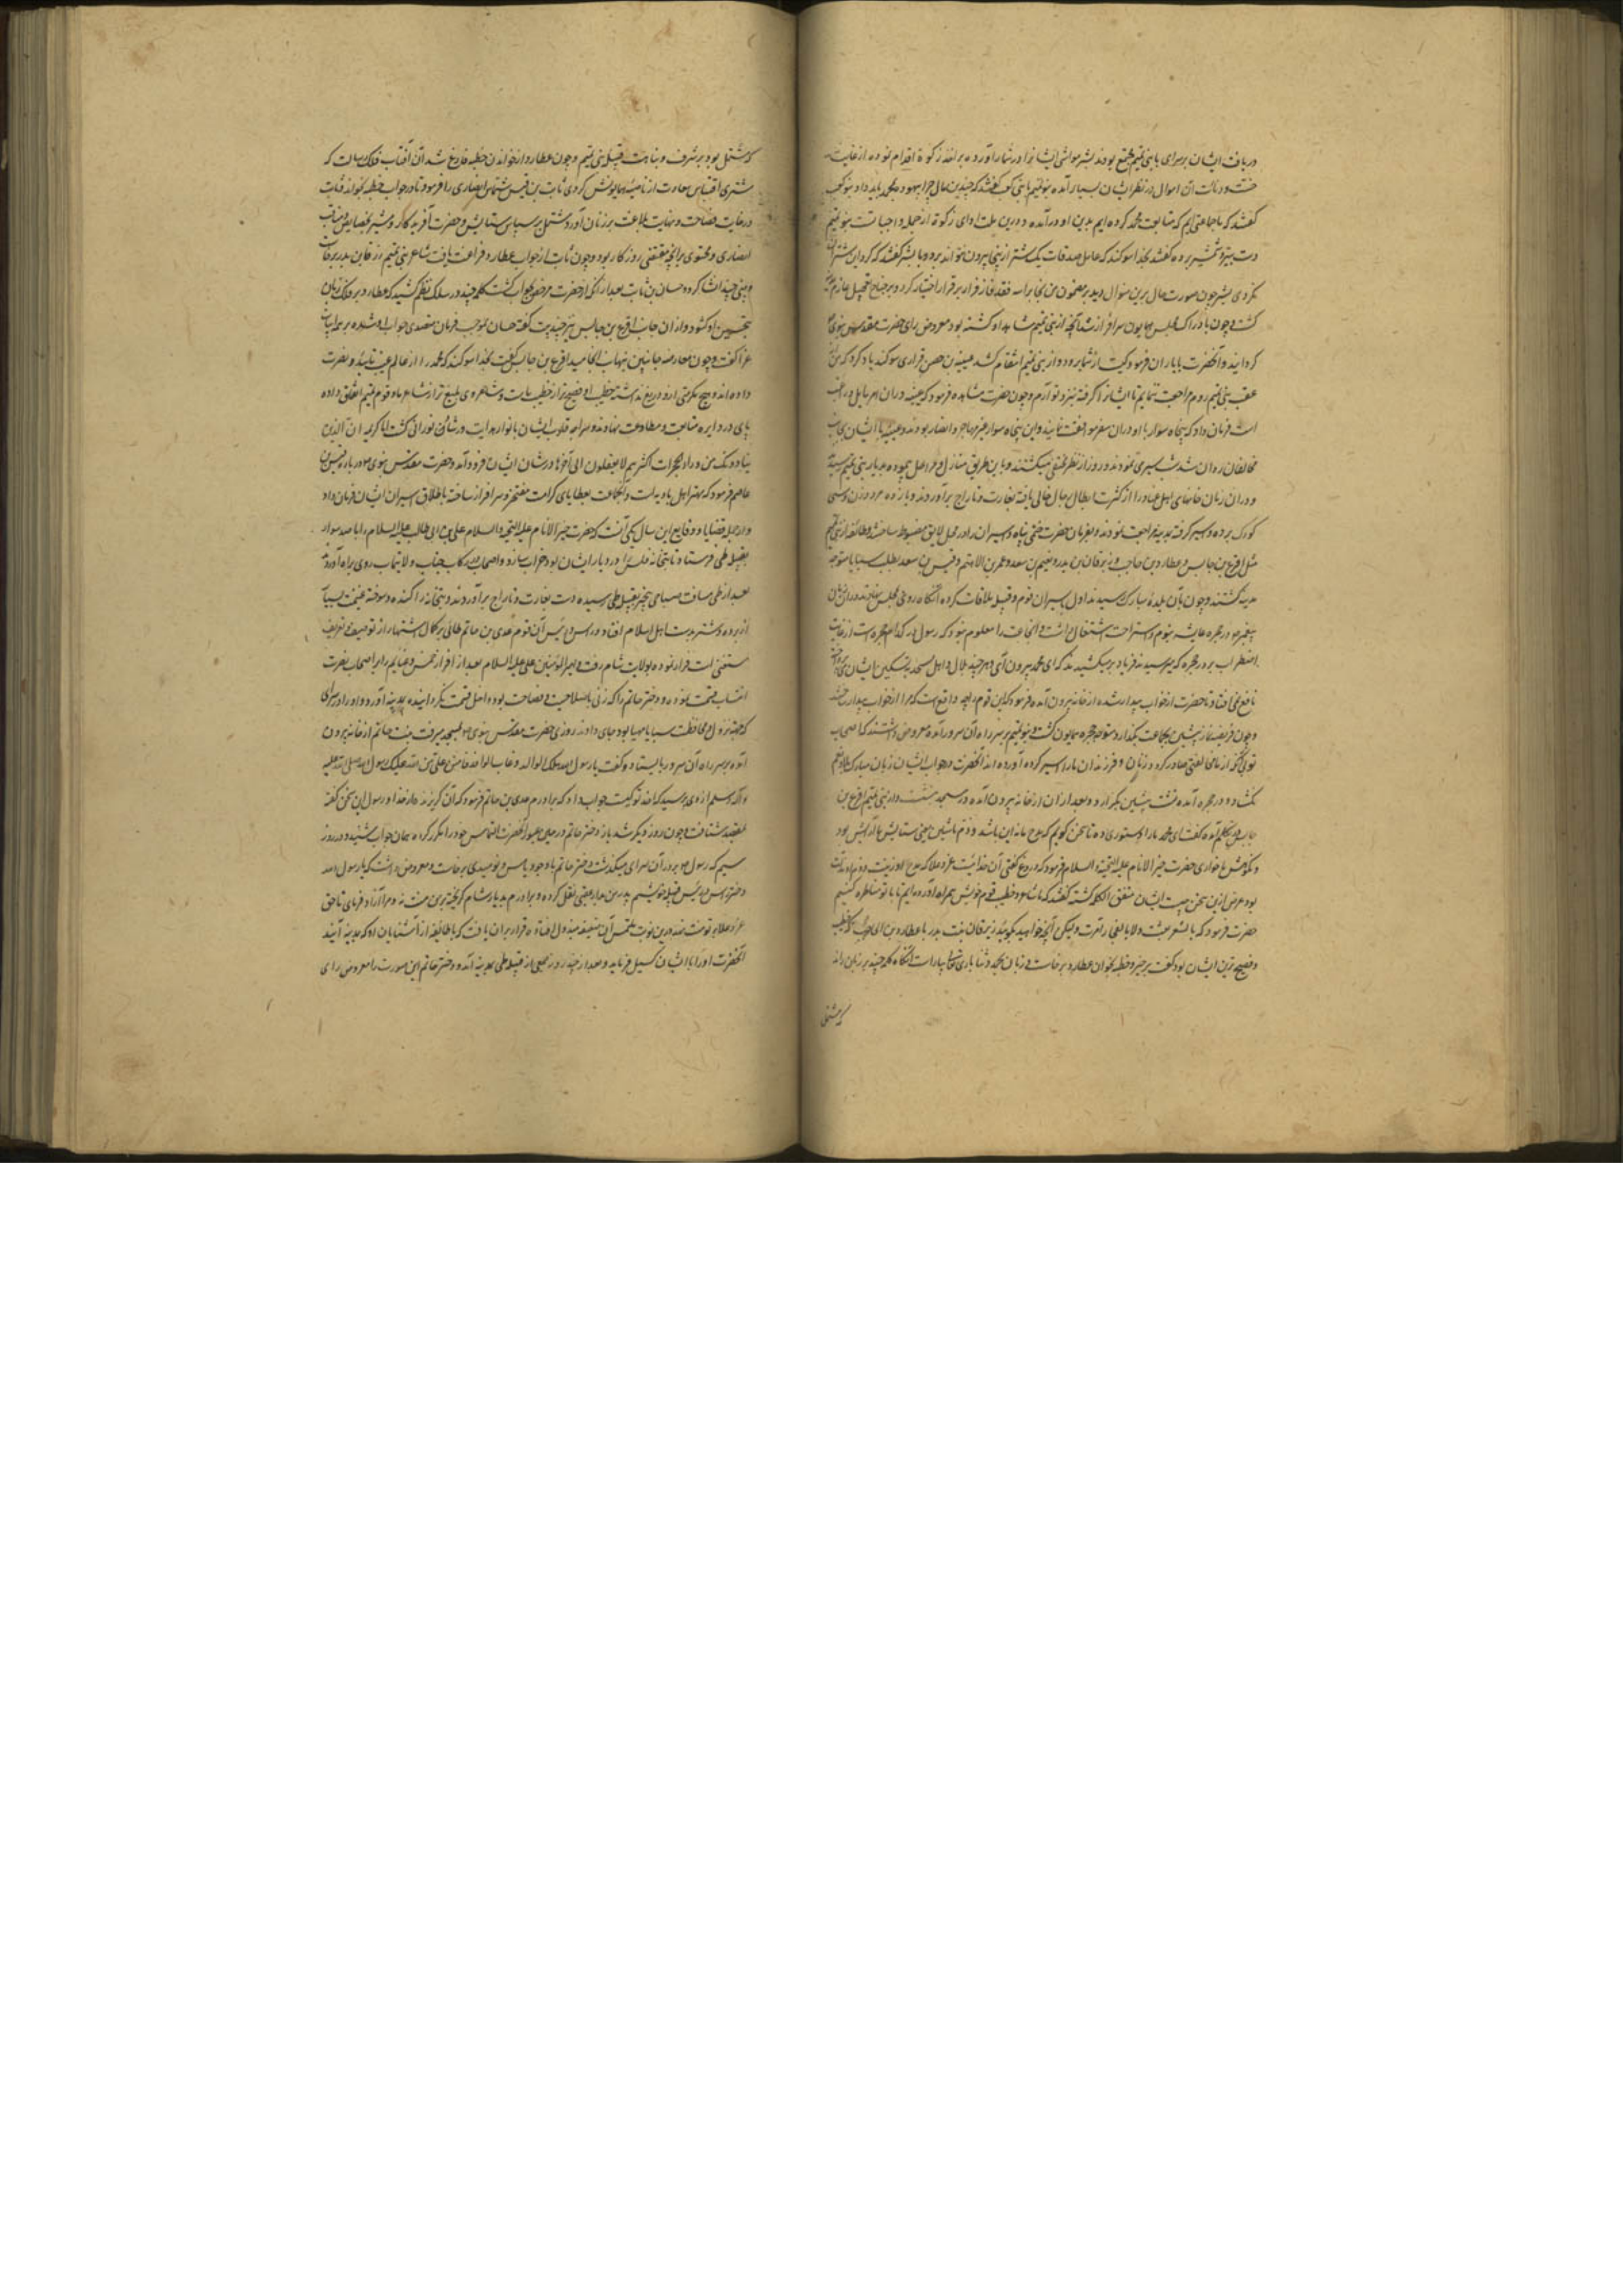 دریافت ایشان بر سرای با بنی تمیم مجتمع بودند بشر مواشی ایشانرا در شمار آورده بر اخذ زکوة اقدام نموده از غایت
خست و دنائت آن اموال در نظر ایشان بسیار آمده بنو تمیم با بنی کعب گفتند که چندین مال چرا بیهوده بمحمد باید داد بنو کعب
گفتند که ما جماعتی ایم که متابعت محمد کرده ایم بدین او درآمده و درین ملت ادای زکوة از جمله واجبات است بنو تمیم
دست بتیر و شمشیر برده گفتند بخدا سوگند که عامل صدقات یک شتر ازینجا بیرون نتواند برد و با بشر گفتند که گرد این شتران
نگردی بشر چون صورت حال برین منوال دید بر مضمون من نجا براسه فقد فاز فرار بر قرار اختیار کرد و بر جناح تعجیل عازم مدینه
گشت و چون بادراک مجلس همایون سرافراز شد آنچه از بنی تمیم مشاهده او گشته بود معروض رای حضرت مقدس نبوی
گردانید و آنحضرت با یاران فرمود کیست از شما برود و از بنی تمیم انتقام کشد عیینه بن حصن فزاری سوگند یاد کرد که من
عقب بنی تمیم روم مراجعت ننمایم تا ایشانرا گرفته بنزد تو آرم و چون حضرت مشاهده فرمود که عیینه در آن امر مایل و راغب
است فرمان داد که پنجاه سوار با او در آن سفر موافقت نمایند و این پنجاه سوار غیر مهاجر و انصار بودند و عیینه با ایشان بجانب
مخالفان روان شد شب سیری نمودند و روز از نظر مختفی میگشتند و باین طریق منازل و مراحل پیموده بدیار بنی تمیم رسید
و در آن زمان خانهای اهل عناد را از کثرت ابطال رجال خالی یافته بغارت و تاراج برآوردند و یازده مرد و زن و سی
کودک برده و اسیر گرفته بمدینه مراجعت نمودند و بفرمان حضرت ختمی پناه اسیران را در محل لایق مضبوط ساختند و طائفه از بنی تمیم
مثل اقرع بن حابس و عطارد بن حاجب و زبرقان بن بدر و نعیم بن سعد و عمرو بن الاهتم و قیس بن سعد بطلب سبایا متوجه
مدینه گشتند و چون بآن بلده مبارک رسیدند اول باسیران قوم و قبیله ملاقات کرده آنگاه روی بمجلس نهادند و در آن زمان
پیغمبر در حجره عایشه بنوم و استراحت اشتغال داشت و آن جماعت را معلوم نبود که رسول در کدام حجره است از غایت
اضطراب بر در حجره که میرسیدند فریاد برمیکشیدند که ای محمد بیرون آی و هر چند بلال و اهل مسجد بتسکین ایشان می پرداختند
نافع نمی افتاد تا حضرت از خواب بیدار شده از خانه بیرون آمده فرمود که این قوم را چه واقع است که مرا از خواب بیدار ساختند
و چون فریضه نماز پیشین بجماعت بگذارد متوجه حجره همایون گشت و بنو تمیم بر سر راه آن سرور آمده معروض داشتند که اصحاب
تو بی آنکه از ما مخالفتی صادر گردد زنان و فرزندان ما را اسیر کرده آورده اند آنحضرت در جواب ایشان زبان مبارک بلا و نعم
نگشاد و در حجره آمده سنت پیشین بگزارد و بعد از آن از خانه بیرون آمده در مسجد بنشست و از بنی تمیم اقرع بن
حابس بتکلم آمده گفت ای محمد ما را دستوری ده تا سخن گوئیم که مدح ما زین باشد و ذم ما شین یعنی ستایش ما آرایش بود
و نکوهش ما خواری حضرت خیر الانام علیه التحیة و السلام فرمود که دروغ گفتی آن خدائیست عز و علا که مدح او زینت و ذم او مذلت
بود غرض ازین سخن چیست ایشان متفق الکلمه گشته گفتند که ما شاعر و خطیب قوم خویش همراه آورده ایم تا با تو مناظره کنیم
حضرت فرمود که ما بالشعر بعثت ولا بالفخر امرت ولیکن آنچه خواهید بگوئید زبرقان بن بدر با عطارد بن حاجب که خطیب
و فصیح ترین ایشان بود گفت برخیز و خطبه بخوان عطارد برخاست و زبان بحمد و ثنا باری تعالی بیاراست آنگاه کلمه چند بر زبان راند
که مشتمل
که مشتمل بود بر شرف و نباهت قبیله بنی تمیم و چون عطارد از خواندن خطبه فارغ شد آن آفتاب فلک رسالت که
مشتری اقتباس سعادت از ناصیه همایونش کردی ثابت بن قیس شماس انصاری را فرمود تا در جواب خطبه بخواند ثابت
در غایت فصاحت و نهایت بلاغت بر زبان آورد مشتمل بر سپاس و ستایش حضرت آفریدگار و مشیر بخصایص و مناقب
انصاری و محتوی بر آنچه مقتضی روزگار بود و چون ثابت از جواب عطارد فراغت یافت شاعر بنی تمیم زبرقان بن بدر برخاست
و بیتی چند انشا کرد و حسان بن ثابت بعد از آنکه از حضرت مرخص بجواب گشت کلمه چند در سلک نظم کشید که عطارد بر فلک زبان
بتحسین او گشود و از آن جانب اقرع بن حابس نیز چند بیت گفته حسان بموجب فرمان متصدی جواب او شده بر بدیهه ابیات
غرا گفت و چون معارضه جانبین بنهایت انجامید اقرع بن حابس گفت بخدا سوگند که محمد را از عالم غیب تایید و نصرت
داده اند و هیچ مکرمتی ازو دریغ نداشته خطیب او فصیح تر از خطیب ماست و شاعر وی بلیغ تر از شاعر ما و قوم تمیم اتفاق داده
پای در دایره متابعت و مطاوعت نهادند و سراچه قلوب ایشان بانوار هدایت درشان نورانی گشت اما کریمه ان الذین
ینادونک من وراء الحجرات اکثرهم لا یعقلون الی آخرها در شان ایشان فرود آمد و حضرت مقدس نبوی در باره قیس بن
عاصم فرمود که مهتر اهل بادیه است و آن جماعت بعطایای کرامت مفتخر و سرافراز ساخته باطلاق اسیران ایشان فرمان داد
و از جمله قضایا و وقایع این سال یکی آنست که حضرت خیر الانام علیه التحیة والسلام علی بن ابی طالب علیه السلام را با صد سوار
بقبیله طی فرستاد تا بتخانه فلس را در دیار ایشان بود خراب سازد و اصحاب در رکاب جناب ولایتمآب روی براه آوردند
بعد از طی مسافت صباحی بخیر بقبیله طی رسیده دست بغارت و تاراج برآوردند و بتخانه را کنده و سوخته غنیمت بسیار
از برده و شتر بدست اهل اسلام افتاد و رئیس آن قوم عدی بن حاتم طائی که از کمال اشتهار از توصیف و تعریف
مستغنی است فرار نموده بولایت شام رفت و امیر المؤمنین علی علیه السلام بعد از افراز خمس غنایم را بر اصحاب نصرت
انتساب قسمت نموده و دختر حاتم را که زنی با صلاحیت و فصاحت بود داخل قسمت نگردانیده بمدینه آورد و او را در سرای
که جهت نزول و محافظت سبایا مهیا بود جای دادند روزی حضرت مقدس نبوی بمسجد میرفت بنت حاتم از خانه بیرون
آمده بر سر راه آن سرور بایستاد و گفت یا رسول الله هلک الوالد و غاب الوافد فامنن علی من الله علیک رسول الله صلی الله علیه
و آله وسلم از وی پرسید که وافد تو کیست جواب داد که برادرم عدی بن حاتم فرمود که آن گریزنده از خدا و رسول این سخن گفته
بمقصد شتافت و چون روز دیگر شد باز دختر حاتم در حین عبور آنحضرت التماس خود را مکرر گردانید همان جواب شنید و در روز
سیم که رسول بر در آن سرای میگذشت دختر حاتم با وجود یاس و نومیدی برخاست و معروض داشت که یا رسول الله
دختر رئیس قبیله خویشم پدر من بدار عقبی نقل کرده و برادرم بدیار شام گریخته بر من منت نه و مرا آزاد فرمای تا حق
عز و علا بر تو منت نهد درین نوبت ملتمس آن ضعیفه مبذول افتاده قرار بر آن یافت که با طائفه از آشنایان او که بمدینه آیند
آنحضرت او را با ایشان گسیل فرماید و بعد از چند روز جمعی از قبیله طی بمدینه آمدند و دختر حاتم این صورت را معروض رای